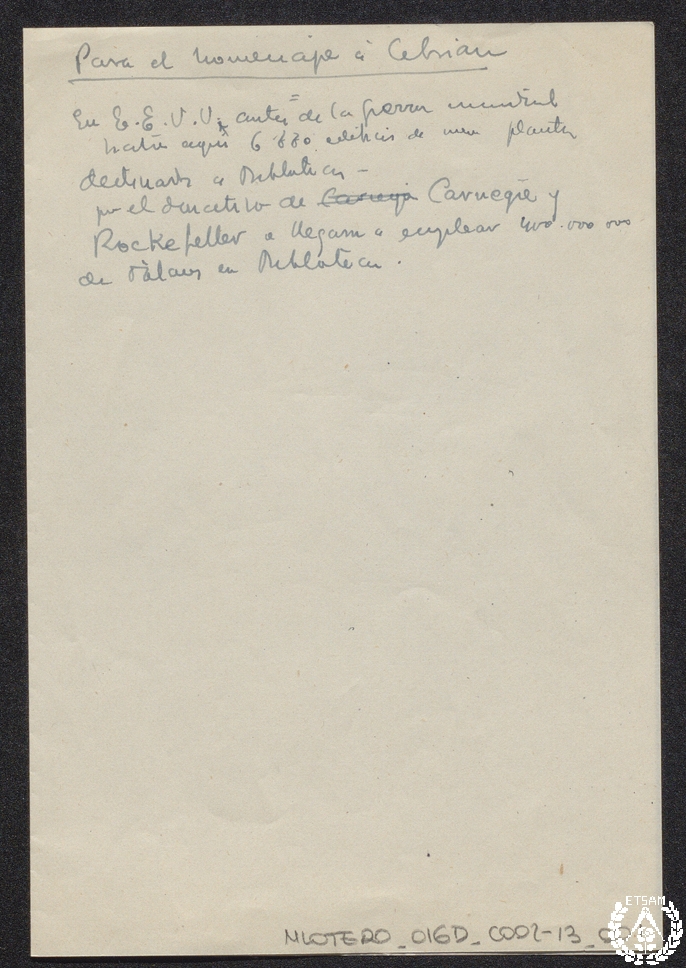 Para el homenaje a Cebrian
En E.E.U.U. antes de la guerra mundial
había aquí 6.880 edificios de planta
destinados a Bibliotecas -
por el donativo de Carnegie y
Rockefeller llegaron a emplear 400.000.000
de dólares en Bibliotecas.
MLOTERO_016D_C002-13_
ETSAM